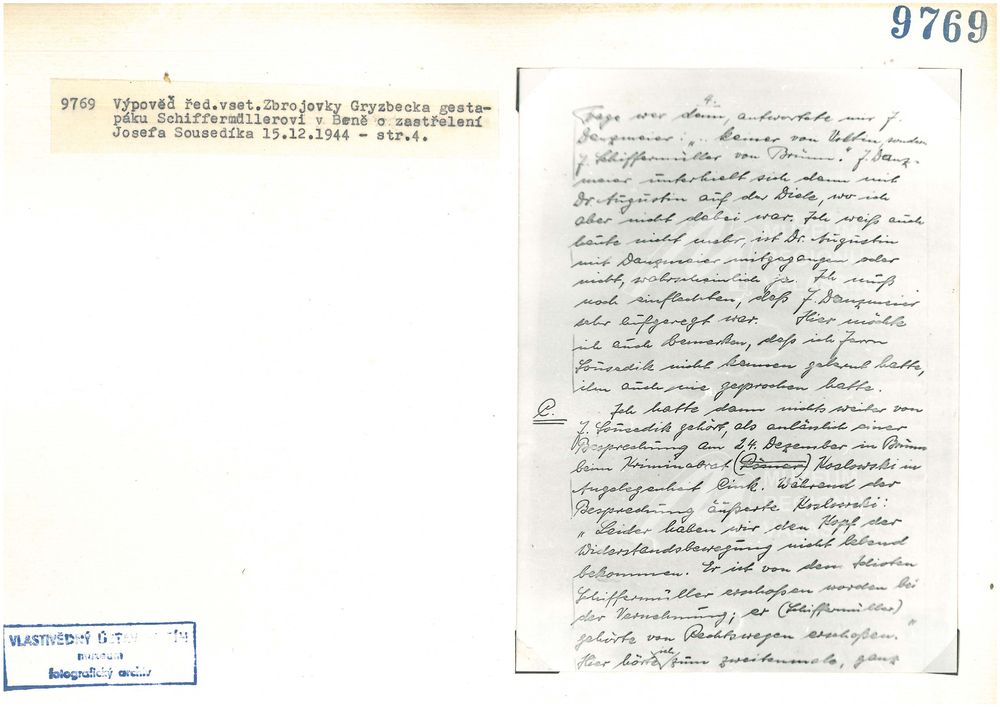 9769
9769 Výpověď řed.vset.Zbrojovky Gryzbecka gesta-
páku Schiffermüllerovi v Brně o zastřelení
Josefa Sousedíka 15.12.1944 - str.4.
4.
Frage wer denn, antwortete mir J.
Danzmeier: „ keiner von Volten, sondern
J. Schiffermüller von Brünn." J. Danz-
meier unterhielt sich dann mit
Dr Augustin auf der Diele, wo ich
aber nicht dabei war. Ich weiß auch
heute nicht mehr, ist Dr. Augustin
mit Danzmeier mitgegangen oder
nicht, wahrscheinlich ja. Ich muß
noch einflechten, daß J. Danzmeier
sehr aufgeregt war. Hier möchte
ich auch bemerken, daß ich Herrn
Sousedik nicht kennen gelernt hatte,
ihn auch nie gesprochen hatte.
C. Ich hatte dann nichts weiter von
J. Sousedik gehört, als anläslich einer
Besprechung am 24. Dezember in Brünn
beim Kriminalrat () Koslowski in
Angelegenheit Cink. Während der
Besprechung äußerte Koslowski:
„ Leider haben wir den Kopf der
Widerstandsbewegung nicht lebend
bekommen. Er ist von dem Idioten
Schiffermüller erschoßen worden bei
der Vernehmung; er (Schiffermüller)
gehörte von Rechtswegen erschoßen. "
Hier hörte ich zum zweitenmale, ganz
VLASTIVĚDNÝ ÚSTAV
museum
fotografický archiv